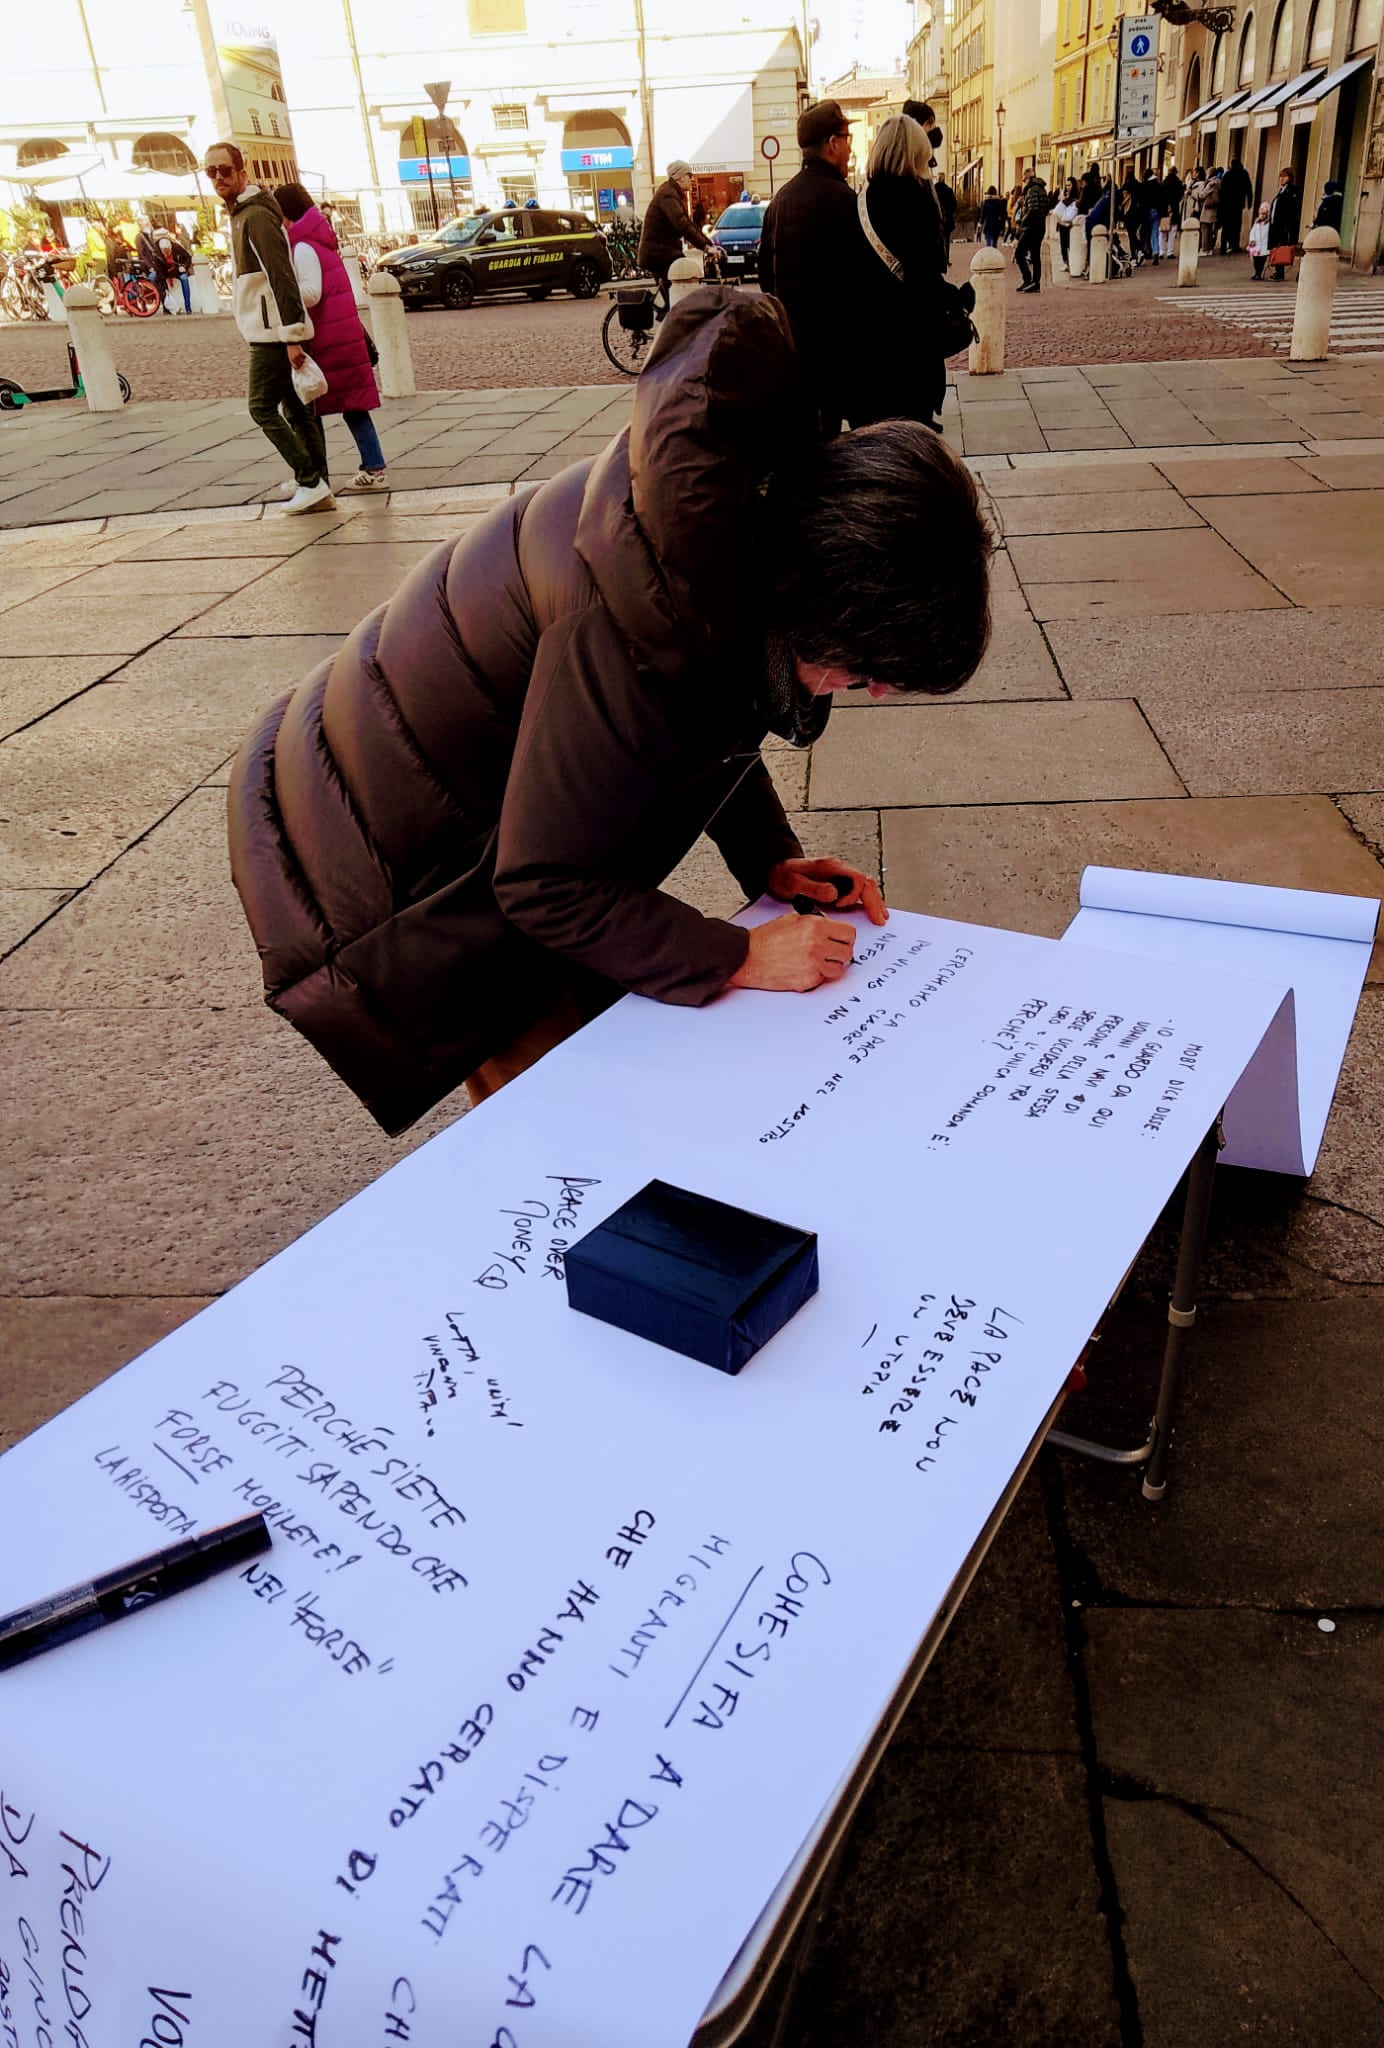 YOUNG
TIM
TIM
GUARDIA di FINANZA
MOBY DICK DISSE:
- IO GUARDO DA QUI
UOMINI E NAVI DI
PERSONE DELLA STESSA
SPECIE UCCIDERSI TRA
LORO E L'UNICA DOMANDA È:
PERCHÉ?
CERCHIAMO LA PACE NEL NOSTRO
CUORE
POI VICINO A NOI
LA PACE NON
DEVE ESSERE
UN UTOPIA
PEACE OVER
MONEY
LOTTA, UNITÀ,
PERCHÉ SIETE
FUGGITI SAPENDO CHE
FORSE MORIRETE?
LA RISPOSTA
NEL "FORSE"
COME SI FA A DARE LA
MIGRANTI E DISPERATI
CHE HANNO CERCATO DI
DA